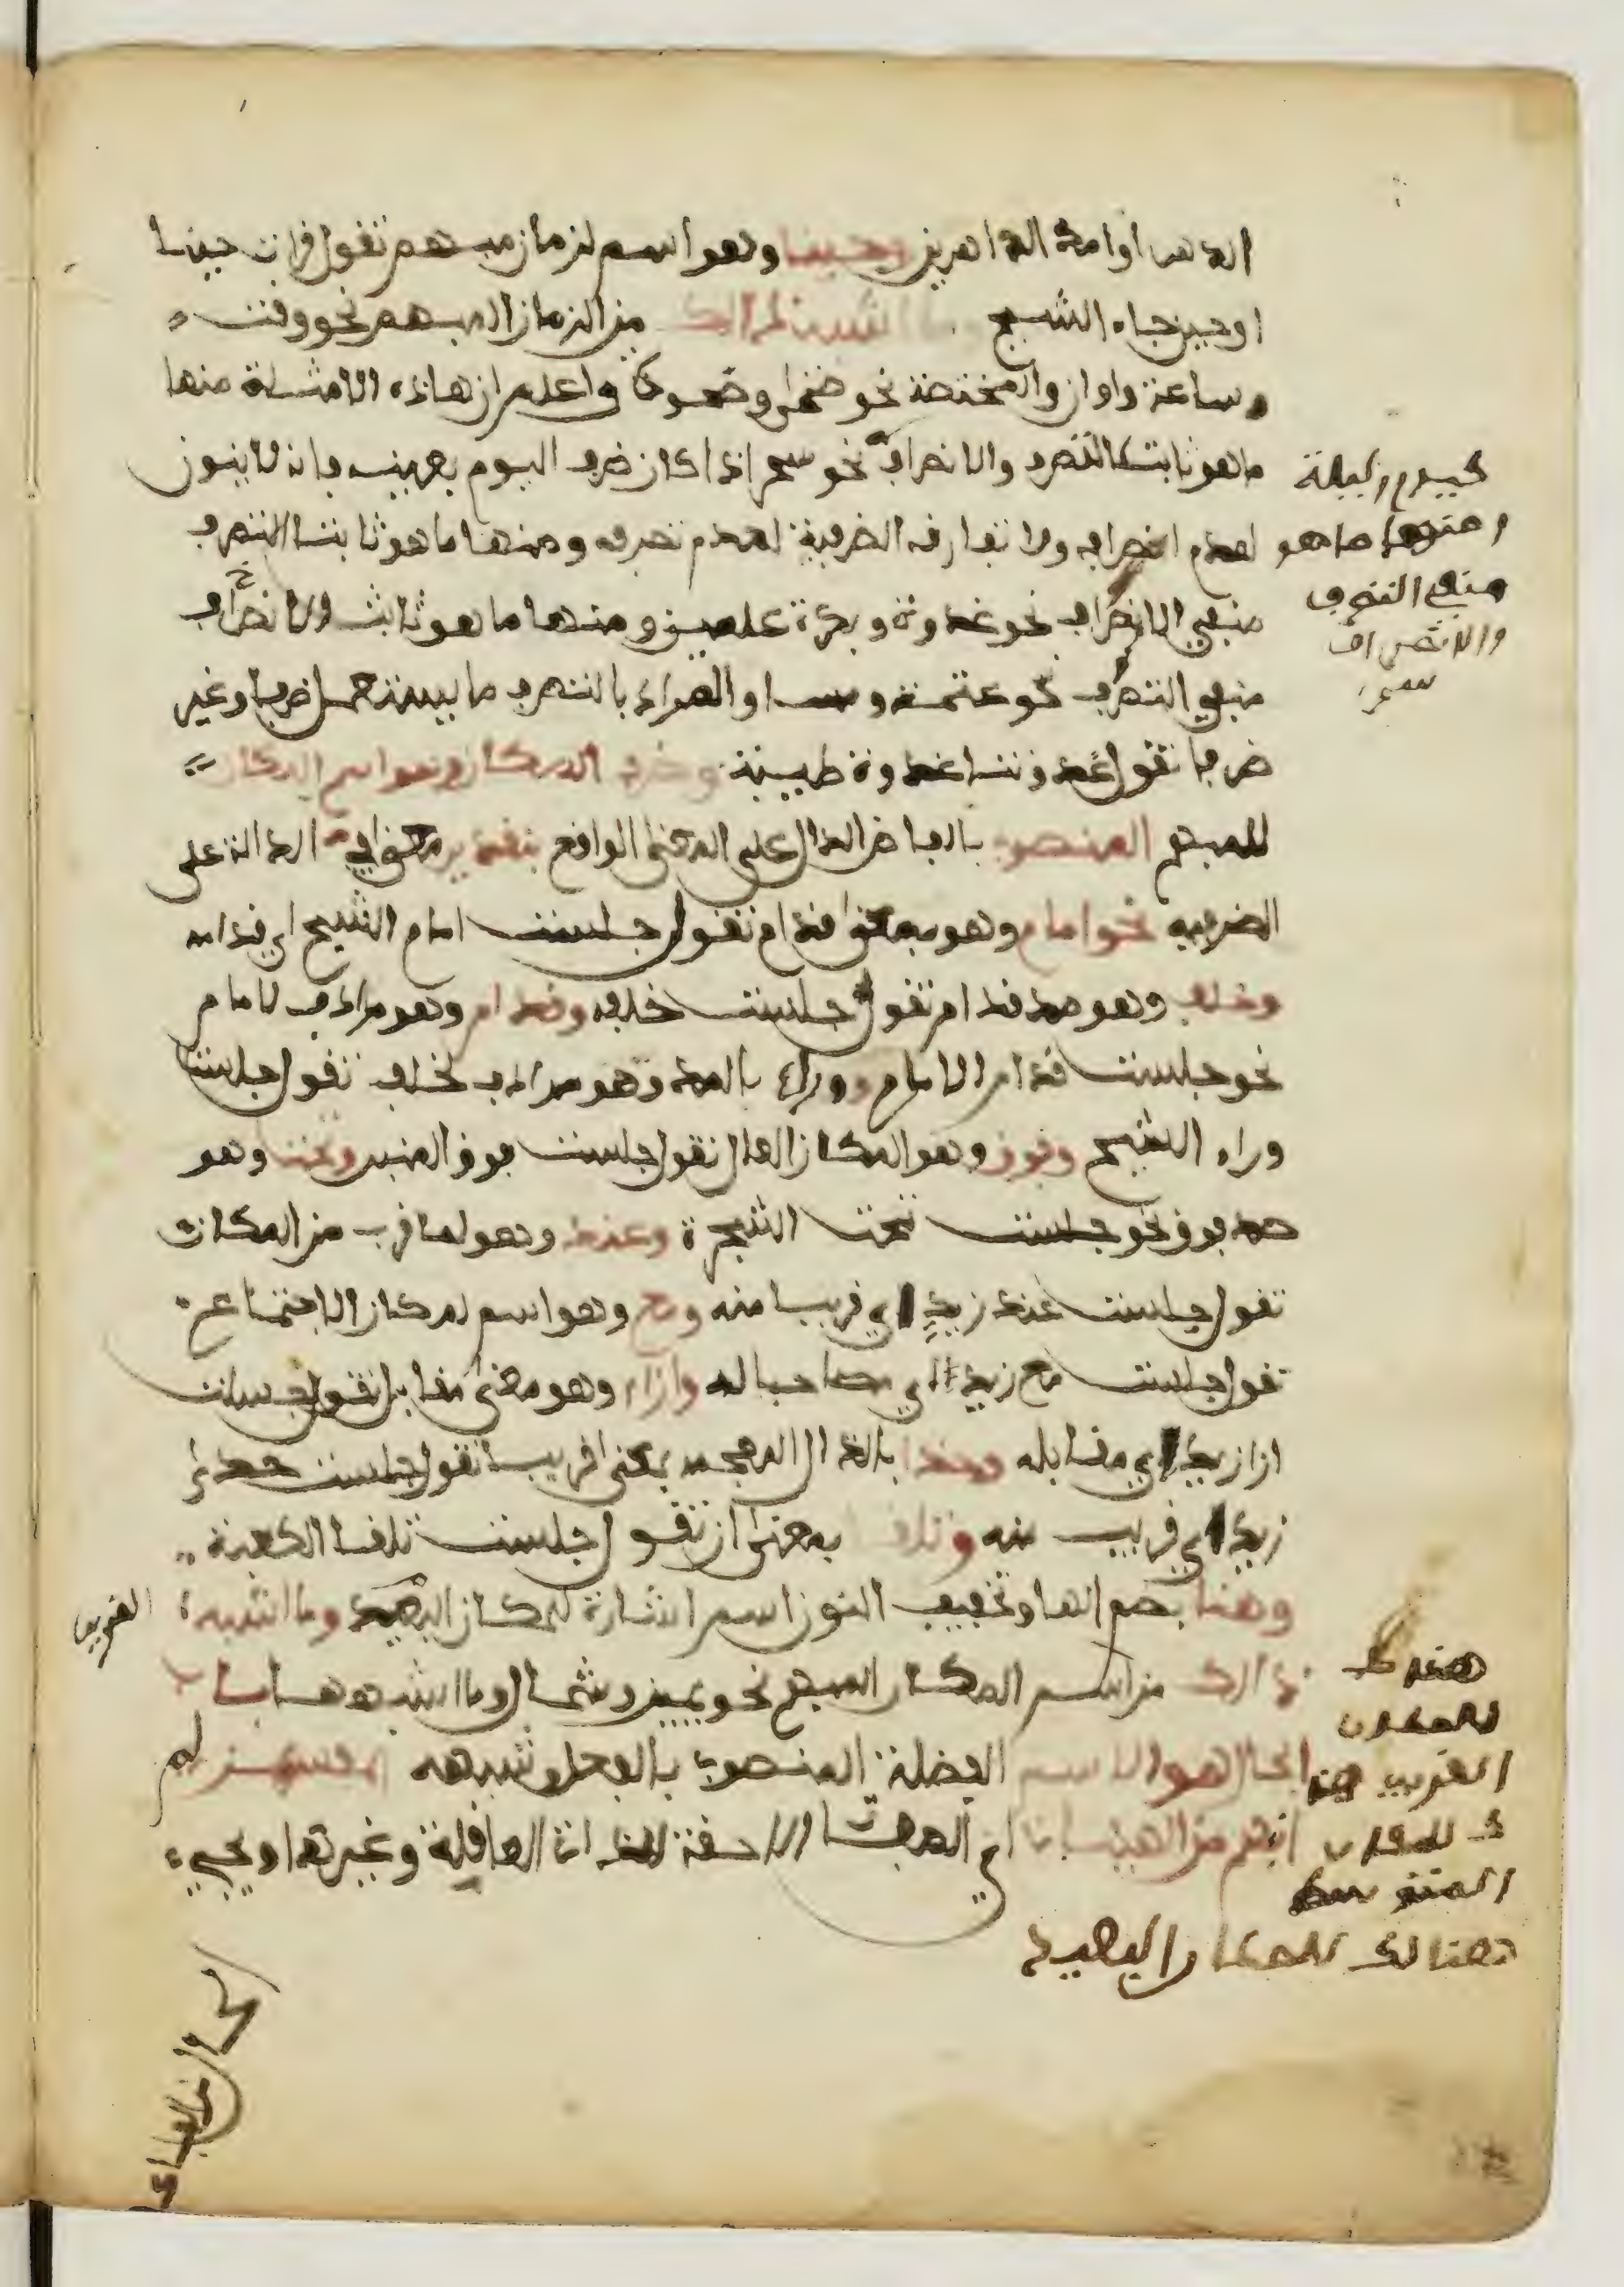 الدهر او امد الداهرين وحينا وهو اسم لزمان مبهم تقول قرات حينا
او حين جاء الشيخ وما اشبه ذالك من الزمان المبهم نحو وقت
وساعة واوان والمختصة نحو ضحى وضحوة واعلم ان هاذه الامثلة منها
ما هو ثابت التصرف والانصراف نحو سحر اذا كان ظرف اليوم بعينه فانه لا ينون
لعدم انصرافه ولا تفارقه الظرفية لعدم تصرفه ومنها ما هو ثابت التصرف
منفي الانصراف نحو غدوة وبكرة علمين ومنها ما هو ثابت الانصراف
منفي التصرف نحو عتمة و والمراد بالتصرف ما يستعمل ظرفا وغير
ظرف تقول غدوتنا غدوة طيبة وظرف المكان وهو اسم المكان
المبهم المنصوب باللفظ الدال على المعنى الواقع بتقدير معنى في الدالة على
الظرفيه نحو امام وهو بمعنى قدام تقول جلست امام الشيخ اي قدامه
وخلف وهو ضد قدام تقول جلست خلفه وقدام وهو مرادف لامام
نحو جلست قدام الامام ووراء بالمد وهو مرادف لخلف تقول جلست
وراء الشيخ وفوق وهو المكان العال تقول جلست فوق المنبر وتحت وهو
ضد فوق نحو جلست تحت الشجرة وعند وهو لما قرب من المكان
تقول جلست عند زيد اي قريبا منه ومع وهو اسم لمكان الاجتماع
تقول جلست مع زيد اي مصاحبا له وازاء وهو بمعنى مقابل تقول جلست
ازا زيد اي مقابله وحذا بالذال المعجمه بمعنى قريب تقول جلست حذاء
زيد اي قريب منه وتلقا بمعنى از تقول جلست تلقا الكعبة
وهنا بضم الها وتخفيف النون اسم اشارة للمكان البعيد وما اشبه
ذالك من اسم المكان المبهم نحو يمين وشمال وما اشبههما باب
الحال هو الاسم الفضلة المنصوب بالفعل وشبهه المفسر لم
انبهم من الهيئات اي الصفات اللاحقة للذات العاقلة وغيرها ويجيء
كيوم وليلة
ومنها ما هو
منفي التصرف
والانصراف
سحر
القريب
هنا
للمكان
القريب هنا
ك للمكان
المتوسط
هنالك للمكان البعيد